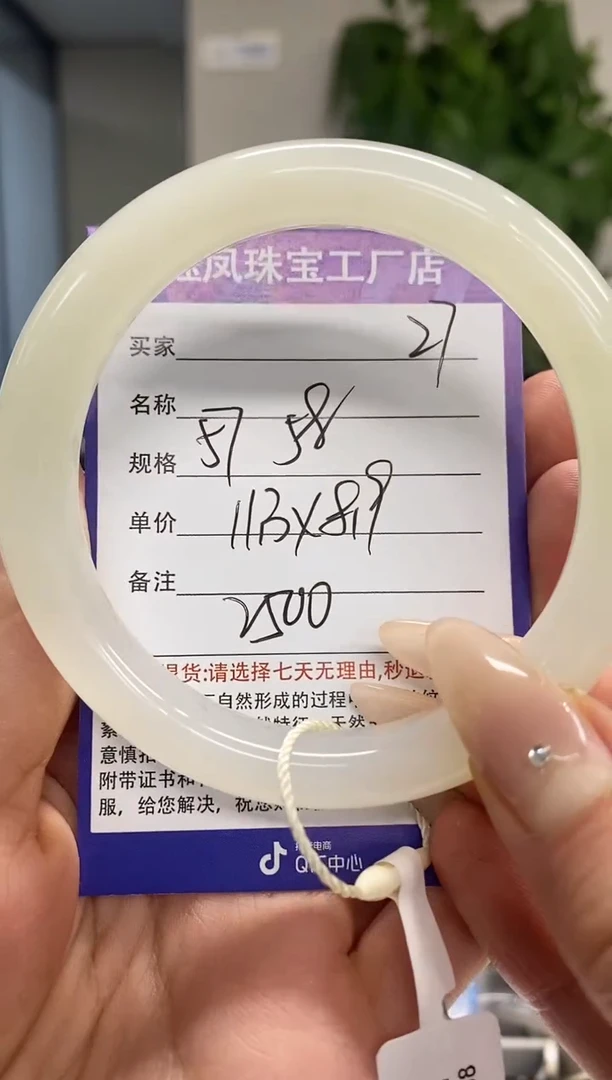 凤珠宝工厂店
买家 27
名称
规格 57 58
单价 113X8.9
备注
2500
货:请选择七天无理由,秒退
自然形成的过程
天然
意慎拍
附带证书和
服，给您解决，祝您
电商
QIC中心
8